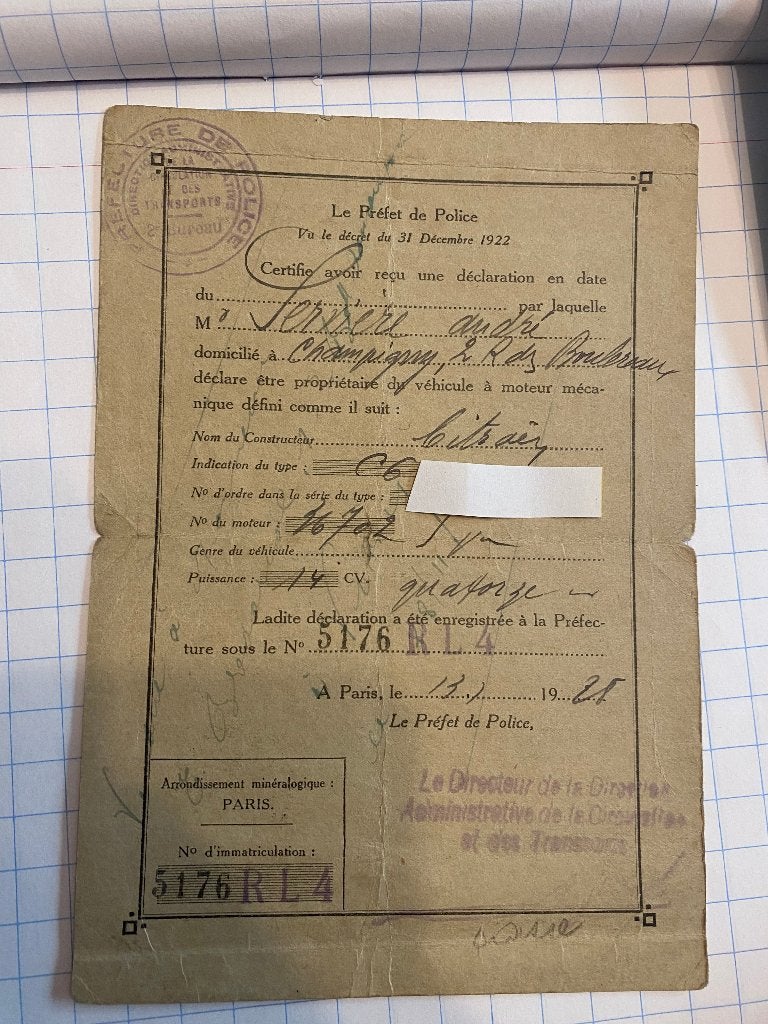 PREFECTURE DE POLICE
DIRECTION ADMINISTRATIVE
DE LA
CIRCULATION
DES
TRANSPORTS
2e Bureau
Le Préfet de Police
Vu le décret du 31 Décembre 1922
Certifie avoir reçu une déclaration en date
du par laquelle
Mr André
domicilié à Champigny, 2 R des
déclare être propriétaire du véhicule à moteur méca-
nique défini comme il suit :
Nom du Constructeur Citroën
Indication du type : C6
No d'ordre dans la série du type :
No du moteur : 702
Genre du véhicule
Puissance : 14 CV. quatorze
Ladite déclaration a été enregistrée à la Préfec-
ture sous le No 5176 RL4
A Paris, le 19
Le Préfet de Police,
Le Directeur de la Direction
Administrative de la Circulation
et des Transports
Arrondissement minéralogique :
PARIS.
No d'immatriculation :
5176 RL4